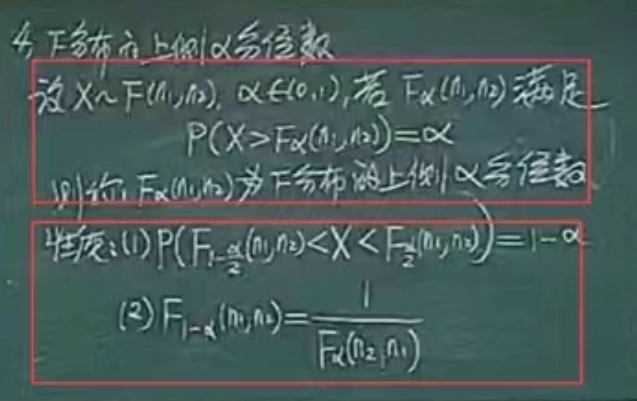 4. F分布的上侧α分位数
设X~F(n₁,n₂), α∈(0,1), 若 Fα(n₁,n₂)满足
P(X>Fα(n₁,n₂))=α
则称 Fα(n₁,n₂)为F分布的上侧α分位数
性质:(1) P(F₁₋α/2(n₁,n₂)<X<Fα/2(n₁,n₂))=1-α
(2) F₁₋α(n₁,n₂)=1/Fα(n₂,n₁)